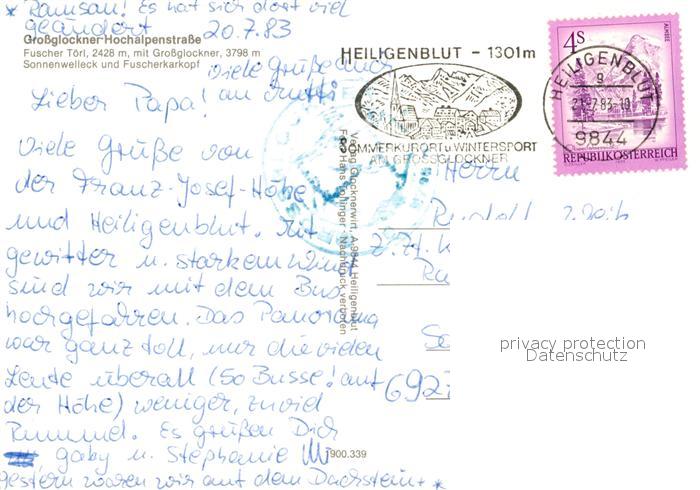 * Ramsau! Es hat sich dort viel
geändert 20.7.83
Großglockner Hochalpenstraße
Fuscher Törl, 2428 m, mit Großglockner, 3798 m
Sonnenwelleck und Fuscherkarkopf
viele Grüße auch
an Trutti
Lieber Papa!
Viele Grüße von
der Franz-Josef-Höhe
und Heiligenblut. Mit
gewitter u. starkem Wind
sind wir mit dem Bus
hochgefahren. Das Panorama
war ganz toll, nur die vielen
Leute überall (50 Busse! auf
der Höhe) weniger, zuviel
Rummel. Es grüßen Dich
gaby u. Stephanie
gestern waren wir auf dem Dachstein *
HEILIGENBLUT – 1301m
SOMMERKURORT u WINTERSPORT
AM GROSSGLOCKNER
4S
REPUBLIK ÖSTERREICH
HEILIGENBLUT
21.7.83-10
9844
Verlag Glocknerwirt, A-9844 Heiligenblut
Nachdruck verboten
Herrn
692
1900.339
privacy protection
Datenschutz